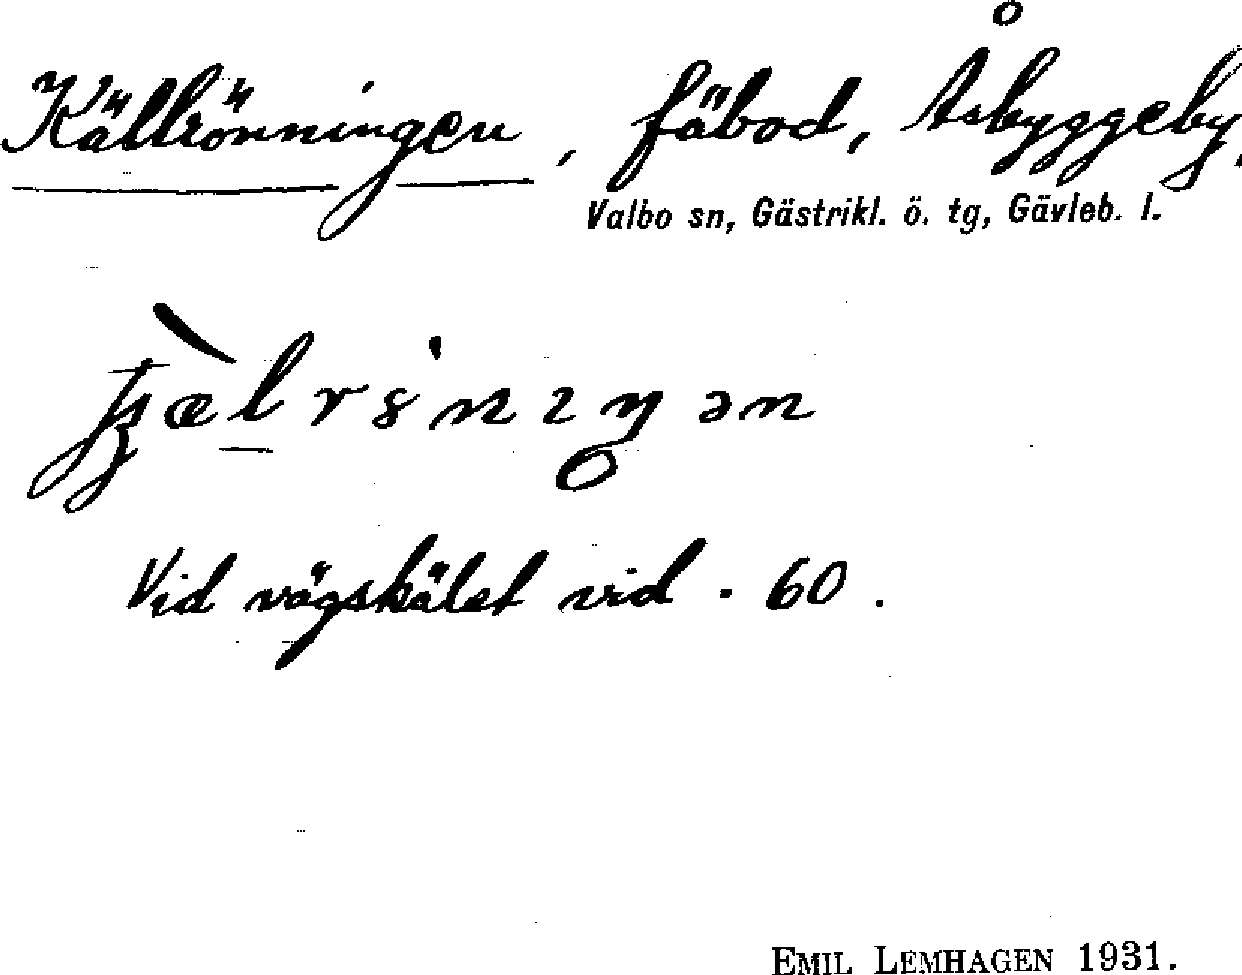 Källrönningen, fäbod, Åsbyggeby.
Valbo sn, Gästrikl. ö. tg, Gävleb. l.
Vid vägskälet vid . 60 .
EMIL LEMHAGEN 1931.